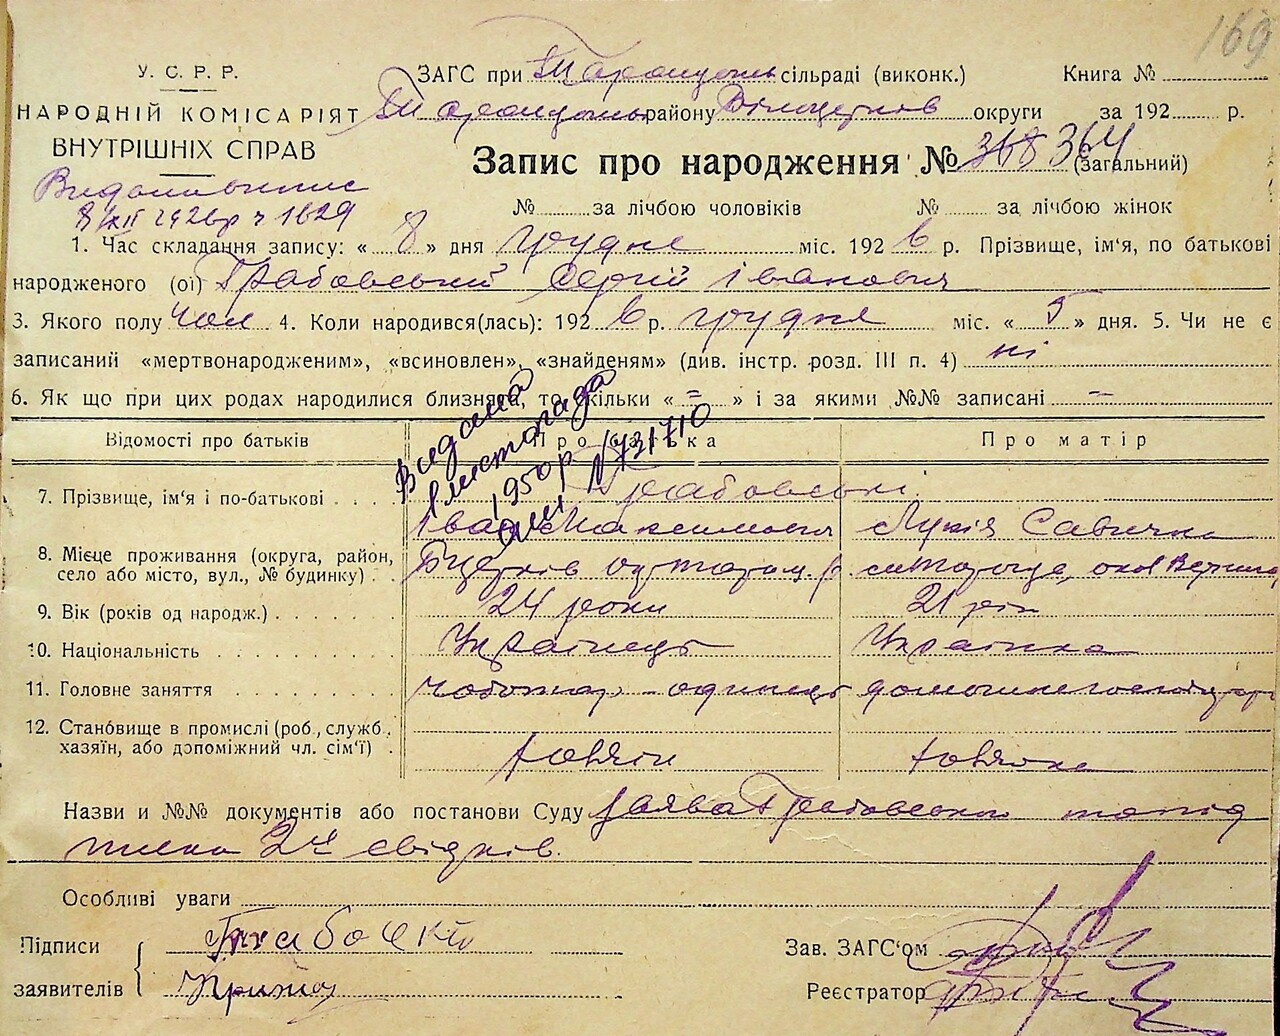 169
У. С. Р. Р.
НАРОДНІЙ КОМІСАРІЯТ
ВНУТРІШНІХ СПРАВ
ЗАГС при сільраді (виконк.) Книга №
району округи за 192 р.
Запис про народження № 368 364 (загальний)
8/XII 1926р ч 1629
№ за лічбою чоловіків № за лічбою жінок
1. Час складання запису: « 8 » дня грудня міс. 192 6 р. Прізвище, ім'я, по батькові
народженого (ої) Грабовський Сергій Іванович
3. Якого полу чол 4. Коли народився(лась): 192 6 р. грудня міс. « 5 » дня. 5. Чи не є
записаний «мертвонародженим», «всиновлен», «знайденям» (див. інстр. розд. III п. 4) ні
6. Як що при цих родах народилися близнята, то скільки « = » і за якими №№ записані –
Видана
1 листопада
1950р N 731710
Відомості про батьків Про батька Про матір
7. Прізвище, ім'я і по-батькові Грабовські
Іван Максимович Лукія Савична
8. Місце проживання (округа, район,
село або місто, вул., № будинку)
9. Вік (років од народж.) 24 роки 21 рік
10. Національність Українець Українка
11. Головне заняття чоботар – одинець
12. Становище в промислі (роб., служб.
хазяїн, або допоміжний чл. сім'ї)
Назви и №№ документів або постанови Суду заява Грабовського та під
писка 2х свідків.
Особливі уваги
Підписи
заявителів
Зав. ЗАГС'ом
Реєстратор